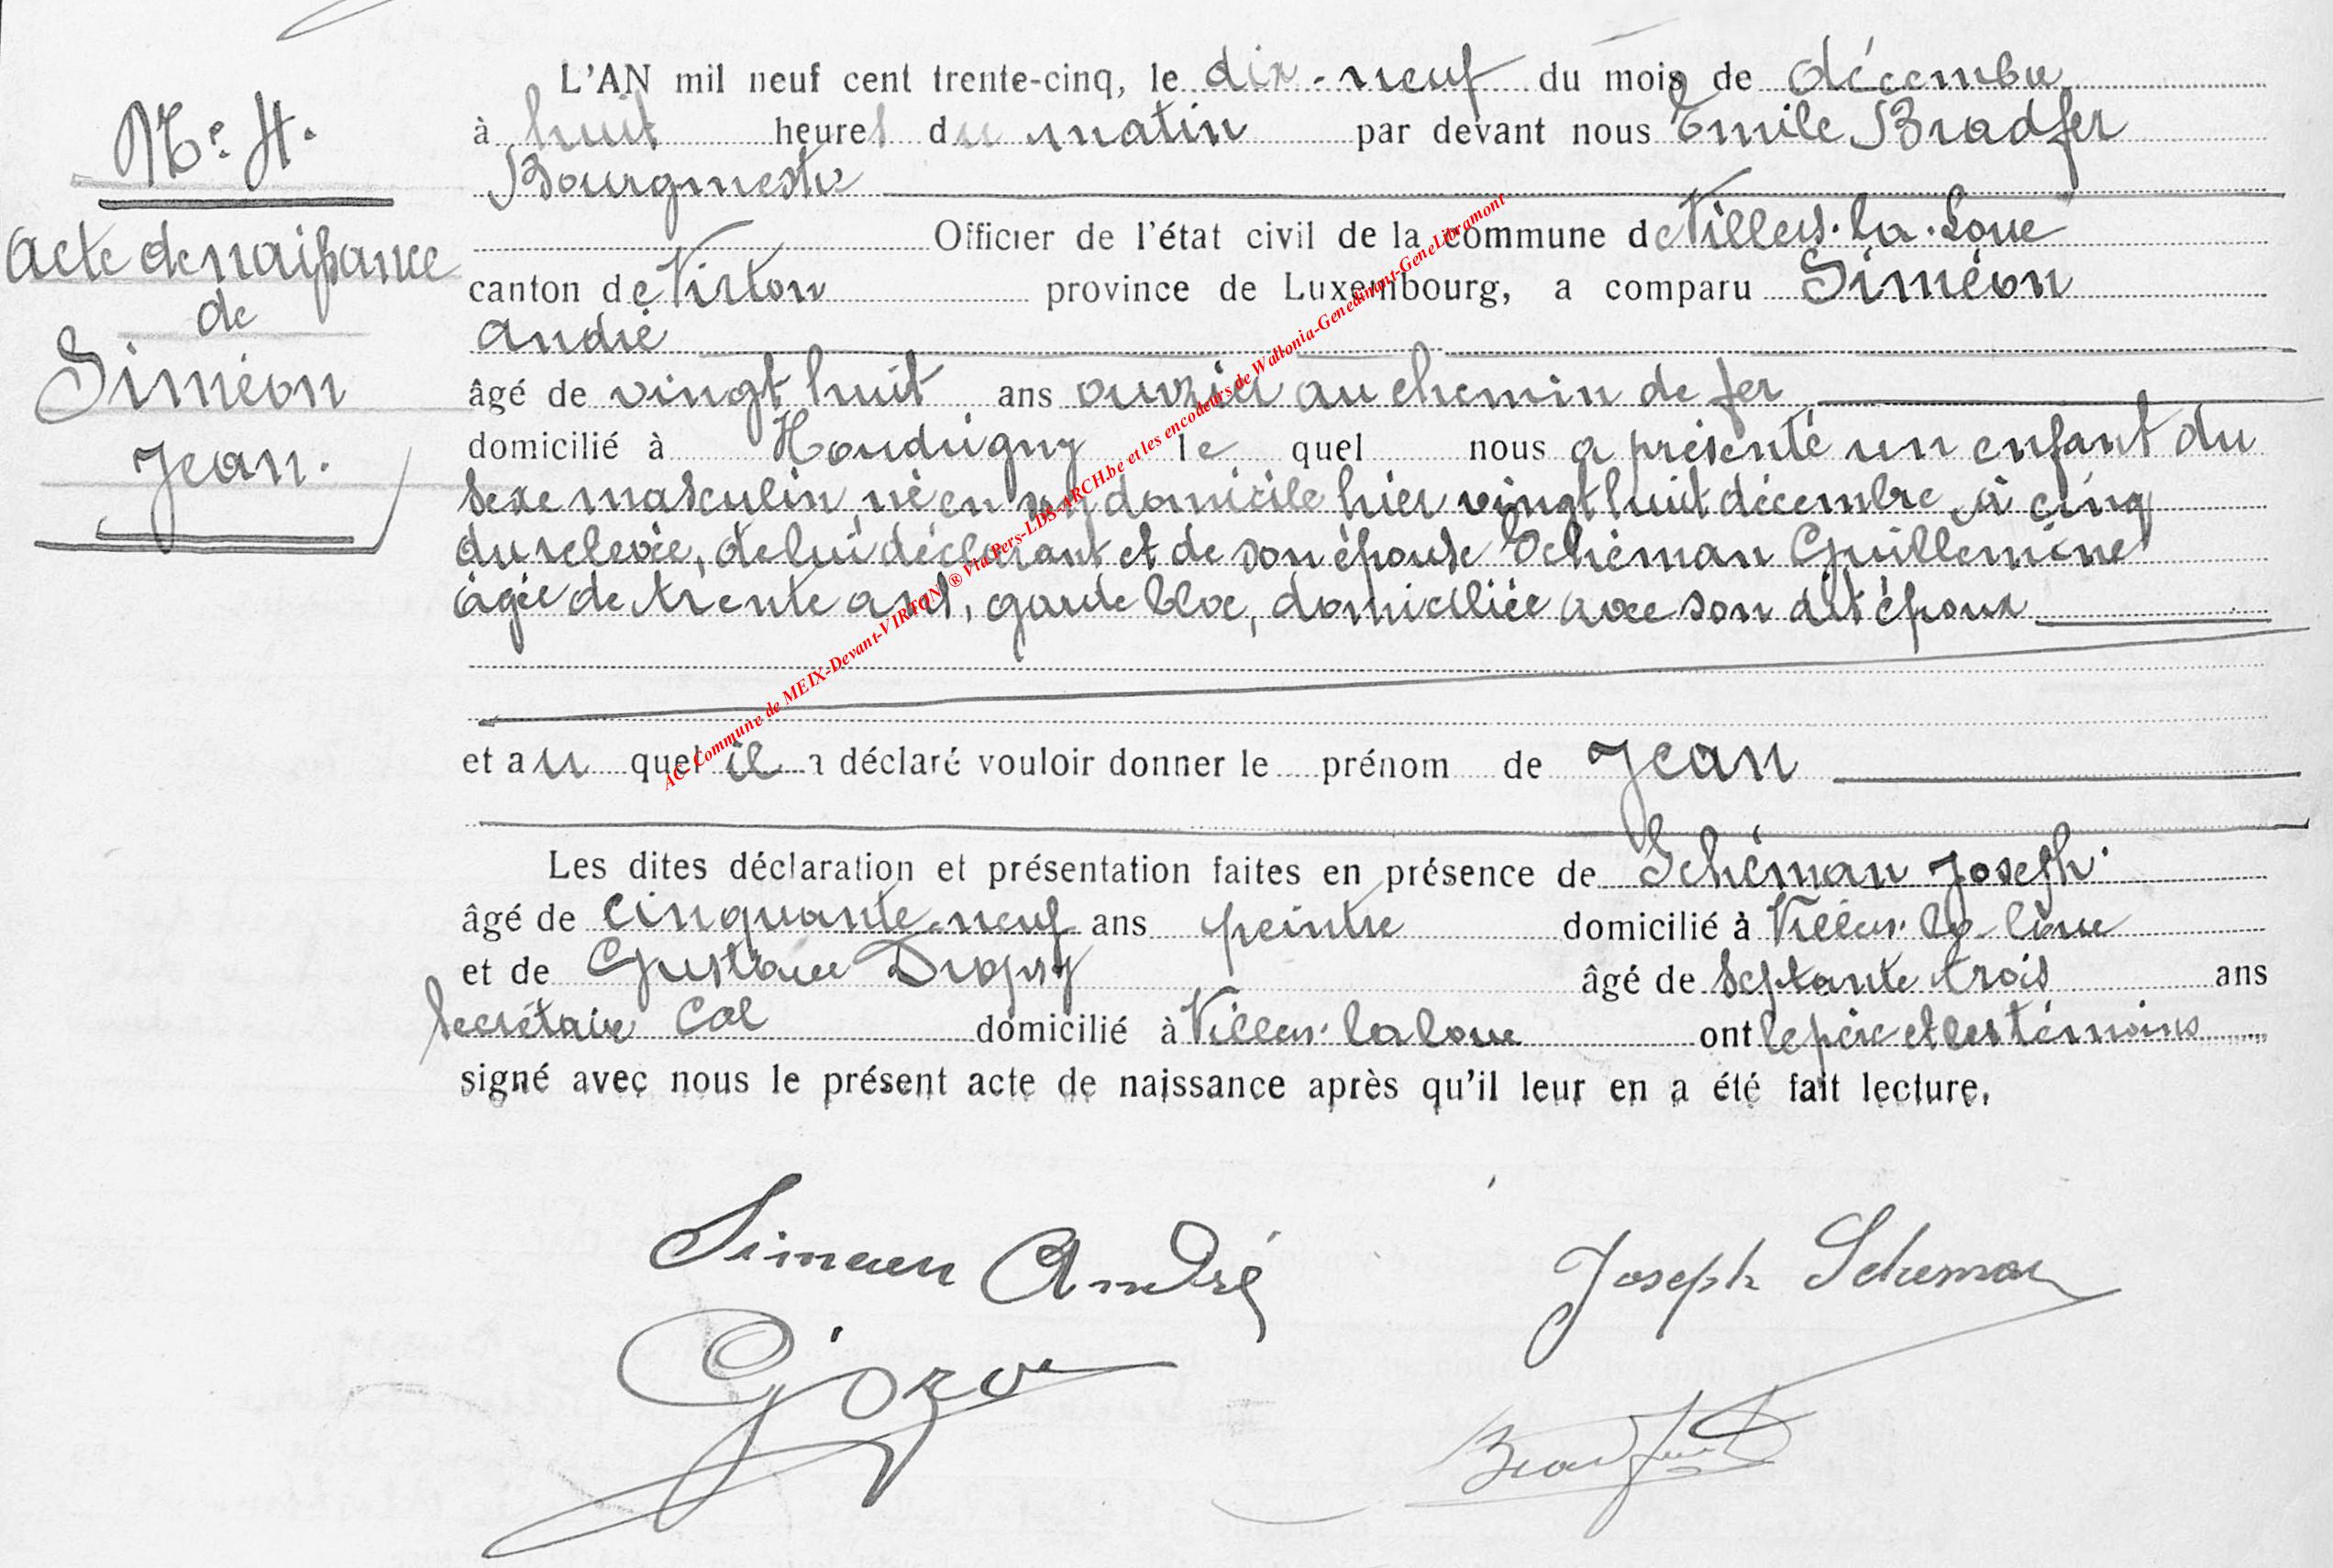 N° 4.
Acte de naissance
de
Siméon
Jean.
L'AN mil neuf cent trente-cinq, le dix-neuf du mois de décembre
à huit heures du matin par devant nous Emile Bradfer
Bourgmestre
Officier de l'état civil de la commune de Villers-la-Loue
canton de Virton province de Luxembourg, a comparu Siméon
André
âgé de vingt huit ans ouvrier au chemin de fer
domicilié à Houdrigny lequel nous a présenté un enfant du
sexe masculin, né en son domicile hier vingt huit décembre à cinq
du relevée, de lui déclarant et de son épouse Schéman Guillemine
âgée de trente ans, garde bloc, domiciliée avec son dit époux
et au quel il a déclaré vouloir donner le prénom de Jean
Les dites déclaration et présentation faites en présence de Schéman Joseph
âgé de cinquante-neuf ans peintre domicilié à Villers-la-Loue
et de Gustave âgé de septante trois ans
secrétaire col domicilié à Villers-la-loue ont le père et les témoins
signé avec nous le présent acte de naissance après qu'il leur en a été fait lecture.
Simeon André
Joseph Scheman
AC-Commune de MEIX-Devant-VIRTON ® Via Pers-LDS-ARCH.be et les encodeurs de Wallonia-Genedinant-GeneLibramont